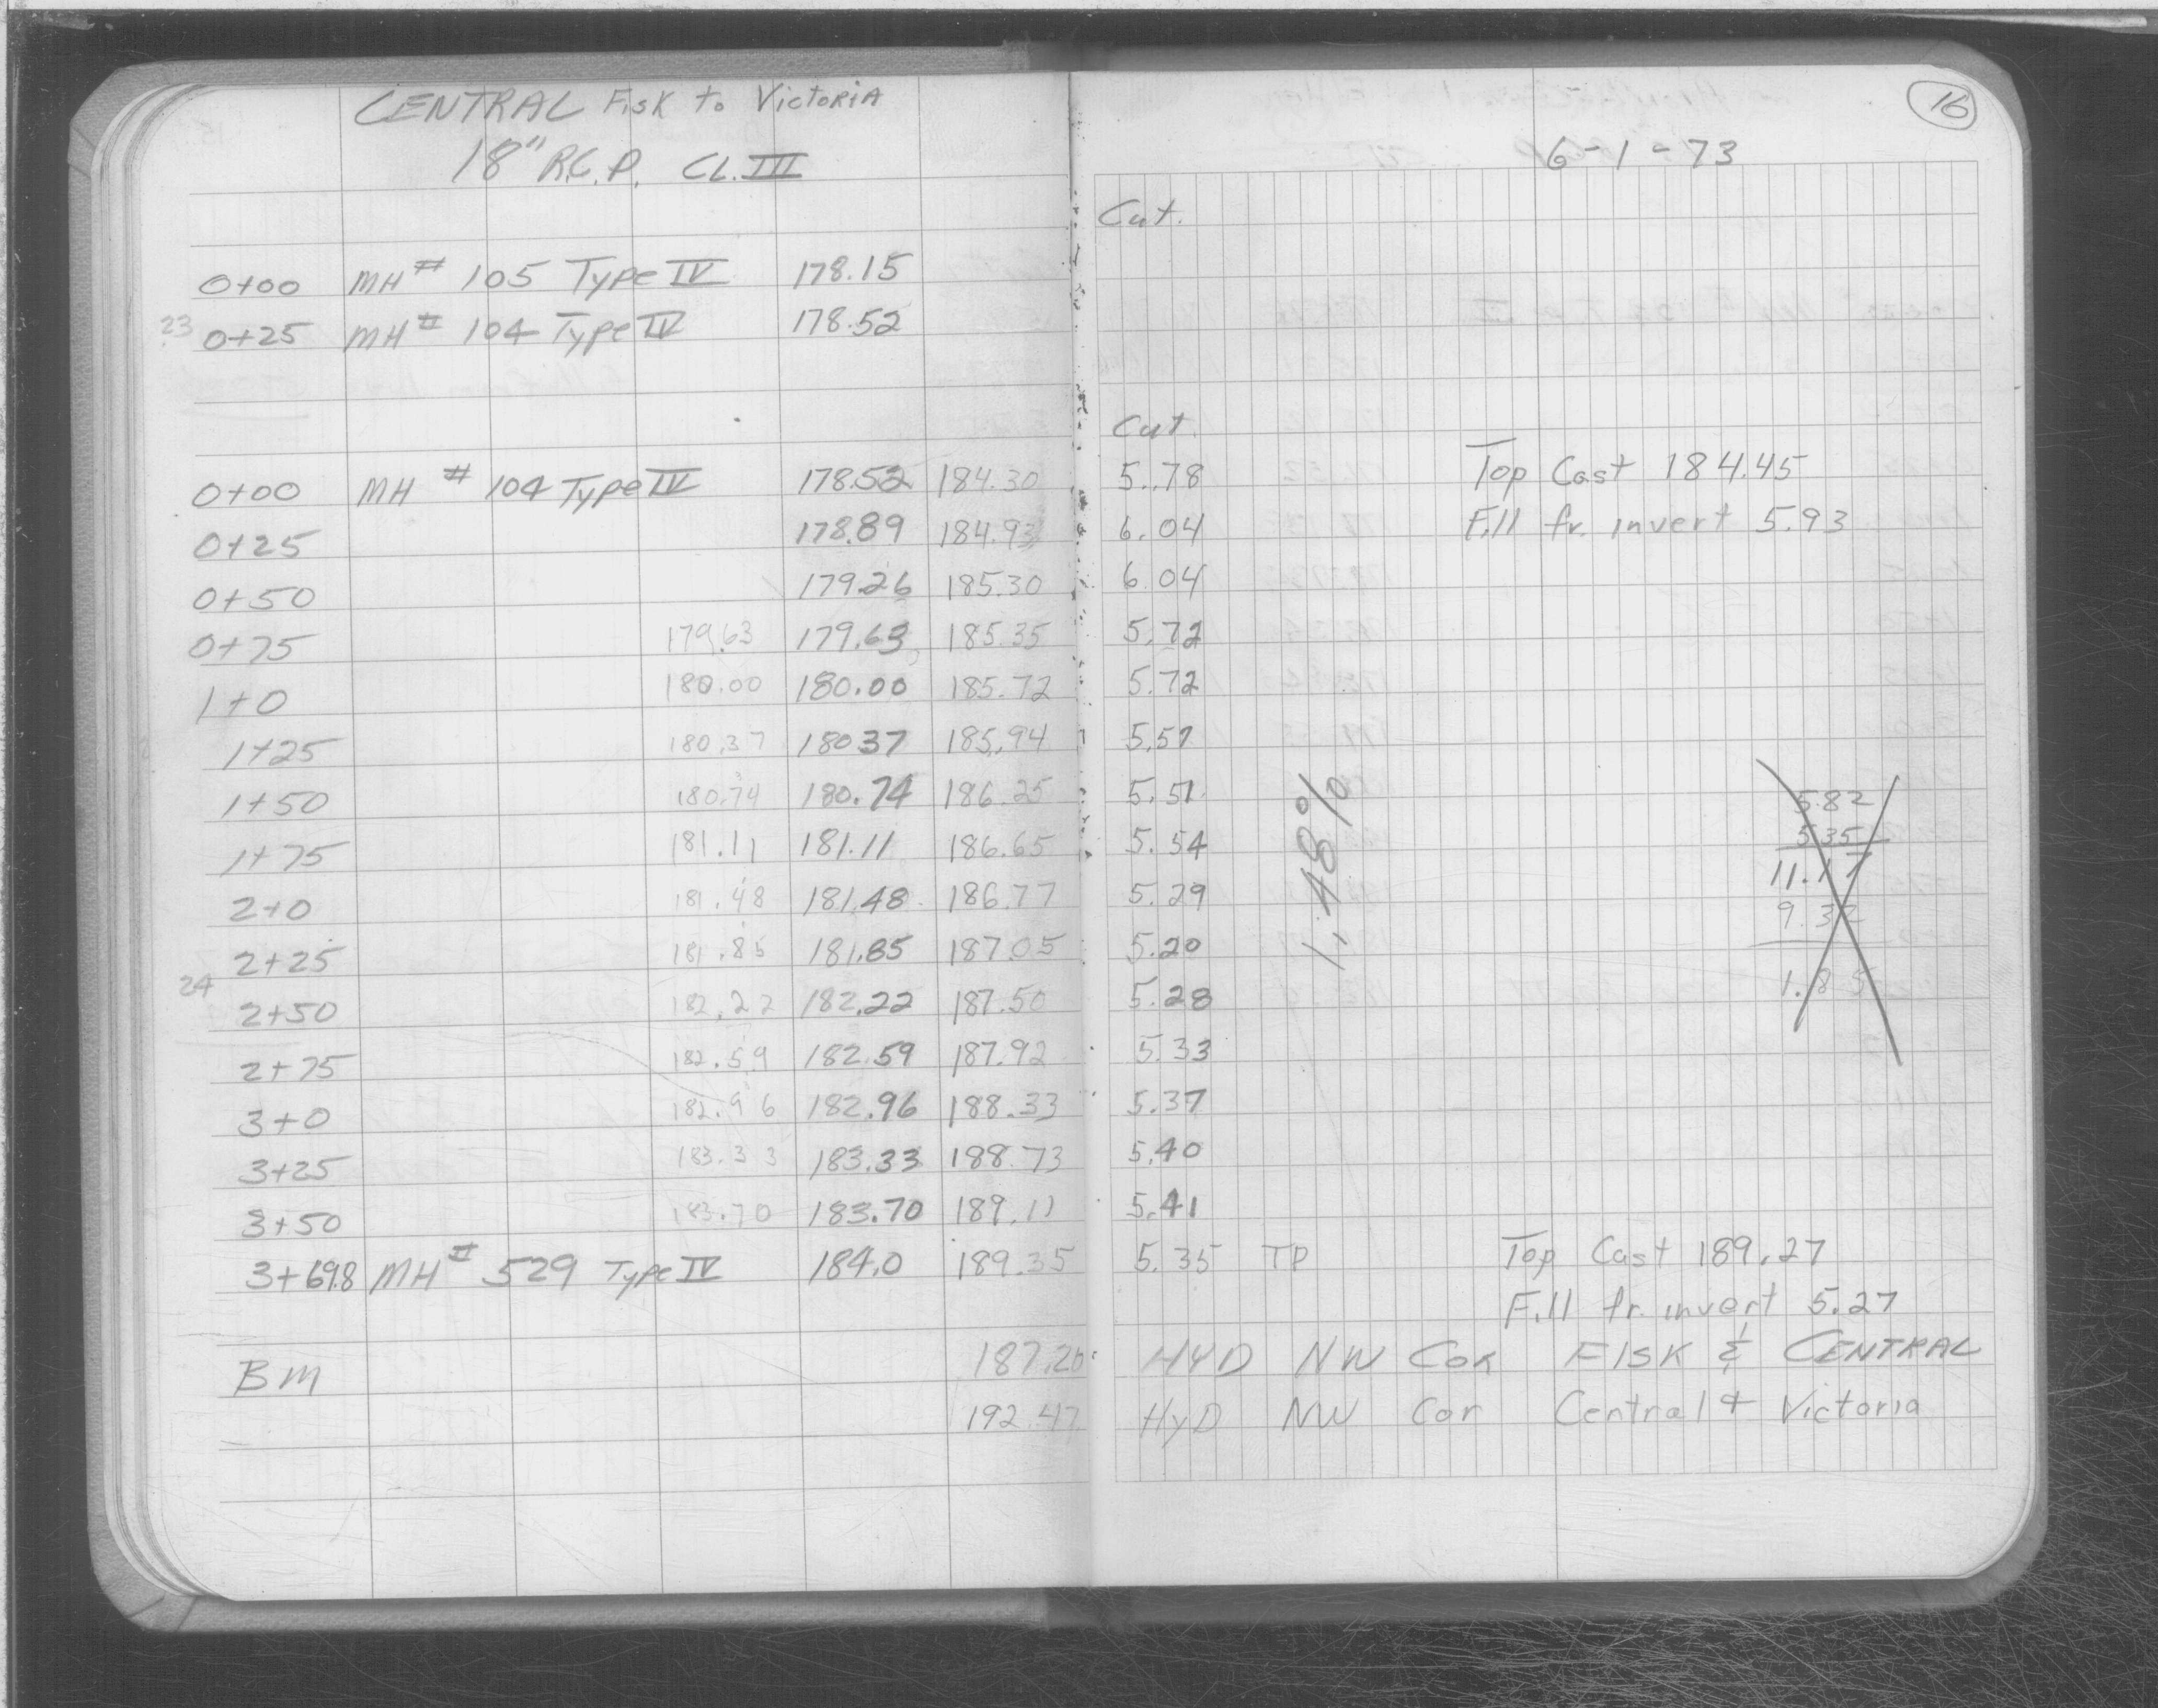 CENTRAL Fisk to Victoria
18" R.C.P. CL. III
16
6-1-73
Cut.
0+00 MH# 105 Type IV 178.15
23
0+25 MH# 104 Type IV 178.52
Cut.
0+00 MH # 104 Type IV 178.52 184.30 5.78 Top Cast 184.45
0+25 178.89 184.93 6.04 Fill fr. invert 5.93
0+50 179.26 185.30 6.04
0+75 179.63 179.63 185.35 5.72
1+0 180.00 180.00 185.72 5.72
1+25 180.37 180.37 185.94 5.57
1+50 180.74 180.74 186.25 5.51
1+75 181.11 181.11 186.65 5.54
2+0 181.48 181.48 186.77 5.29
2+25 181.85 181.85 187.05 5.20
24
2+50 182.22 182.22 187.50 5.28
2+75 182.59 182.59 187.92 5.33
3+0 182.96 182.96 188.33 5.37
3+25 183.33 183.33 188.73 5.40
3+50 183.70 183.70 189.11 5.41
1.48%
5.82
5.35
11.17
9.32
1.85
3+69.8 MH# 529 Type IV 184.0 189.35 5.35 TP Top Cast 189.27
Fill fr. invert 5.27
BM 187.20 HYD NW Cor FISK & CENTRAL
192.47 HyD NW Cor Central & Victoria